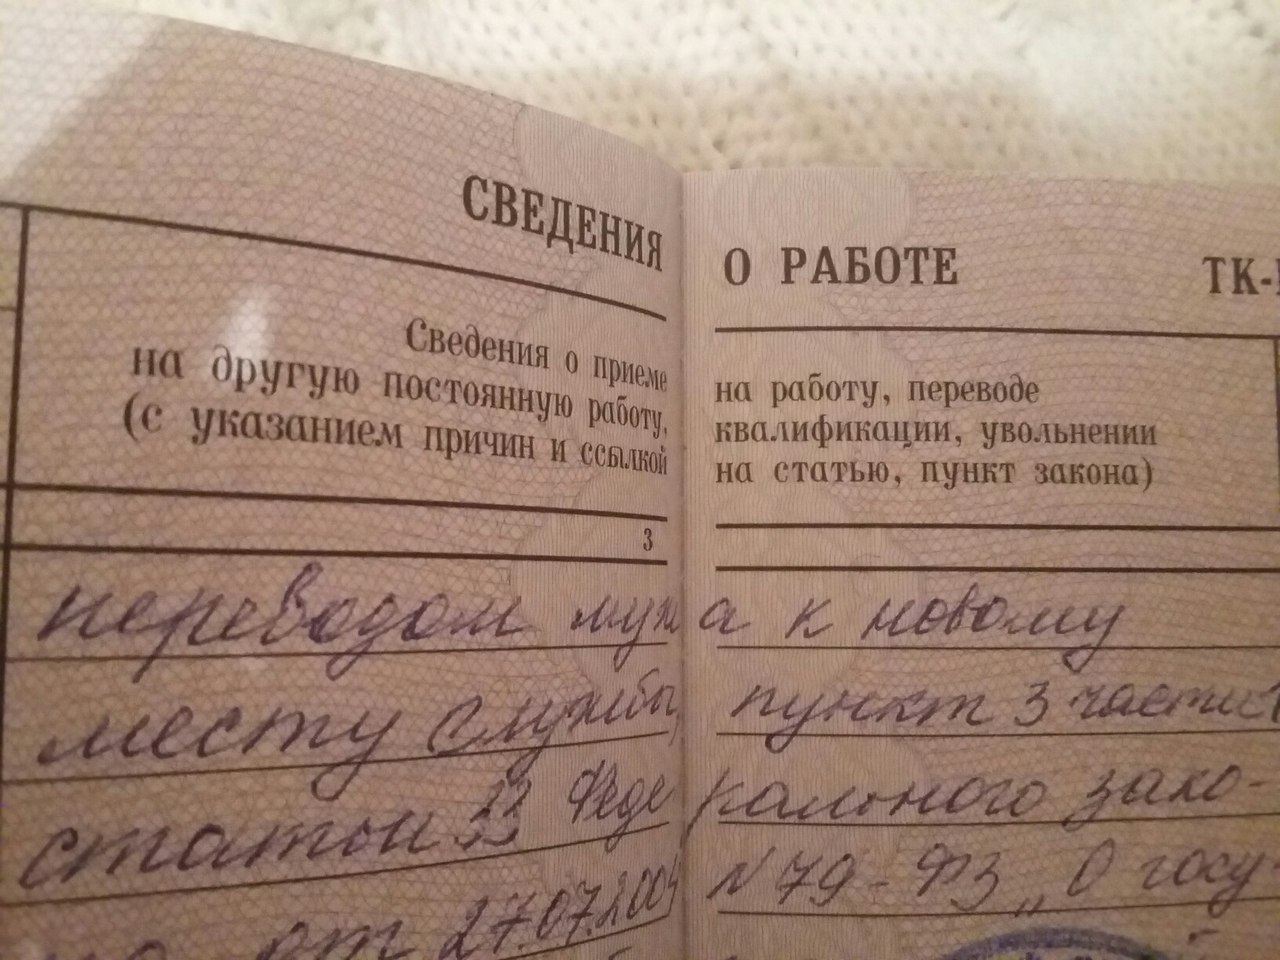 СВЕДЕНИЯ О РАБОТЕ ТК-
Сведения о приеме на работу, переводе
на другую постоянную работу, квалификации, увольнении
(с указанием причин и ссылкой на статью, пункт закона)
3
переводом мужа к новому
месту службы, пункт 3 части 1
статьи 33 Федерального зако-
на от 27.07.2004 N 79-ФЗ „О госу-